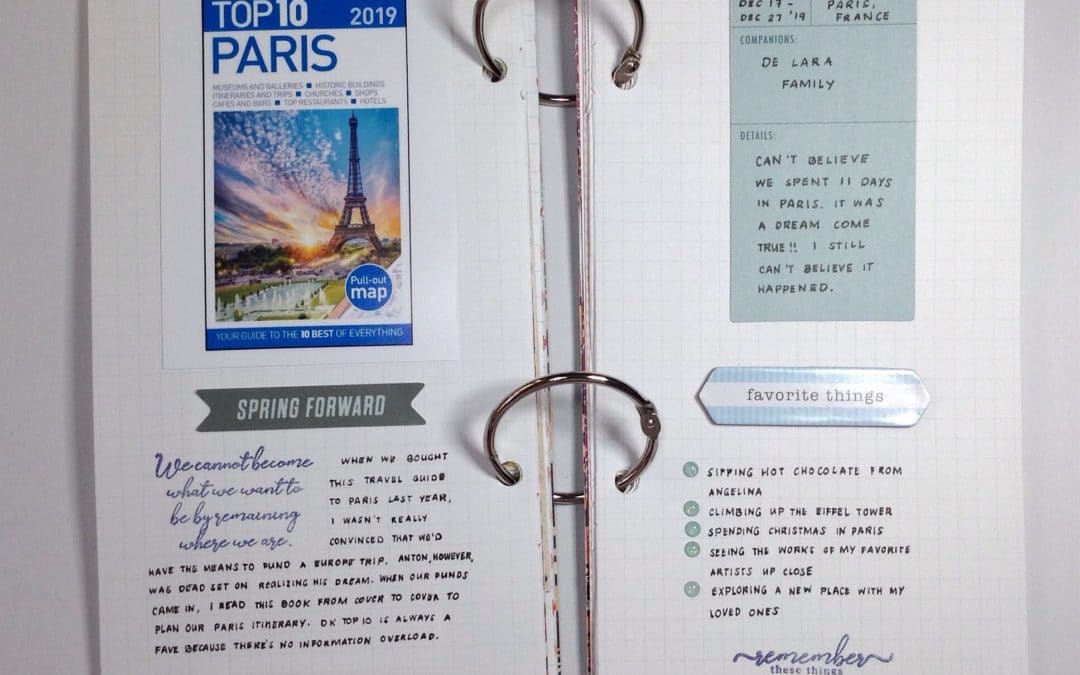 TOP 10 2019
PARIS
MUSEUMS AND GALLERIES ■ HISTORIC BUILDINGS
ITINERARIES AND TRIPS ■ CHURCHES ■ SHOPS
CAFES AND BARS ■ TOP RESTAURANTS ■ HOTELS
Pull-out
map
YOUR GUIDE TO THE 10 BEST OF EVERYTHING
SPRING FORWARD
We cannot become
what we want to
be by remaining
where we are.
WHEN WE BOUGHT
THIS TRAVEL GUIDE
TO PARIS LAST YEAR,
I WASN'T REALLY
CONVINCED THAT WE'D
HAVE THE MEANS TO FUND A EUROPE TRIP. ANTON, HOWEVER,
WAS DEAD SET ON REALIZING HIS DREAM. WHEN OUR FUNDS
CAME IN, I READ THIS BOOK FROM COVER TO COVER TO
PLAN OUR PARIS ITINERARY. DK TOP 10 IS ALWAYS A
FAVE BECAUSE THERE'S NO INFORMATION OVERLOAD.
DEC 17 -
DEC 27 '19
PARIS,
FRANCE
COMPANIONS:
DE LARA
FAMILY
DETAILS:
CAN'T BELIEVE
WE SPENT 11 DAYS
IN PARIS. IT WAS
A DREAM COME
TRUE!! I STILL
CAN'T BELIEVE IT
HAPPENED.
favorite things
SIPPING HOT CHOCOLATE FROM
ANGELINA
CLIMBING UP THE EIFFEL TOWER
SPENDING CHRISTMAS IN PARIS
SEEING THE WORKS OF MY FAVORITE
ARTISTS UP CLOSE
EXPLORING A NEW PLACE WITH MY
LOVED ONES
remember
these things